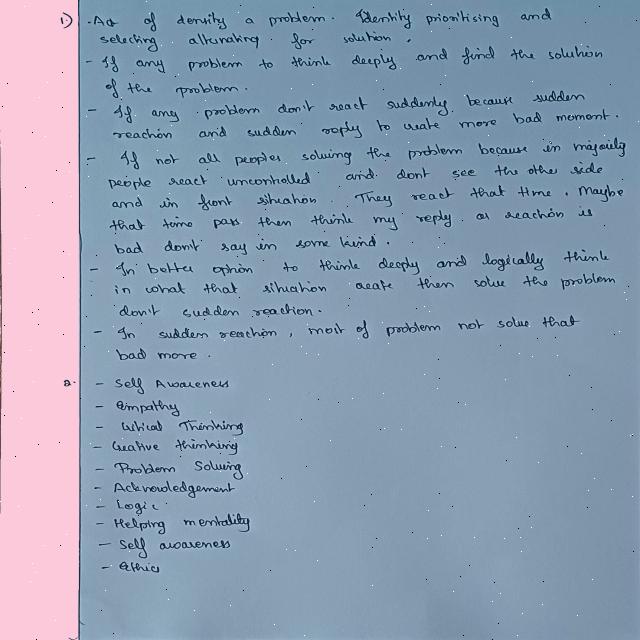 1) - Act of density a problem. Identity prioritising and
selecting alternating for solution.
- If any problem to think deeply and find the solution
of the problem.
- If any problem don't react suddenly because sudden
reaction and sudden reply to create more bad moment.
- If not all peoples solving the problem because in majority
people react uncontrolled and dont see the other side
and in front situation. They react that time. Maybe
that time pass then think my reply or reaction is
bad dont say in some kind.
- In better option to think deeply and logically think
in what that situation create then solve the problem
don't sudden reaction.
- In sudden reaction, most of problem not solve that
bad more.
2. - Self Awareness
- Empathy
- Critical Thinking
- Creative thinking
- Problem Solving
- Acknowledgement
- Logic
- Helping mentality
- Self awareness
- Ethics